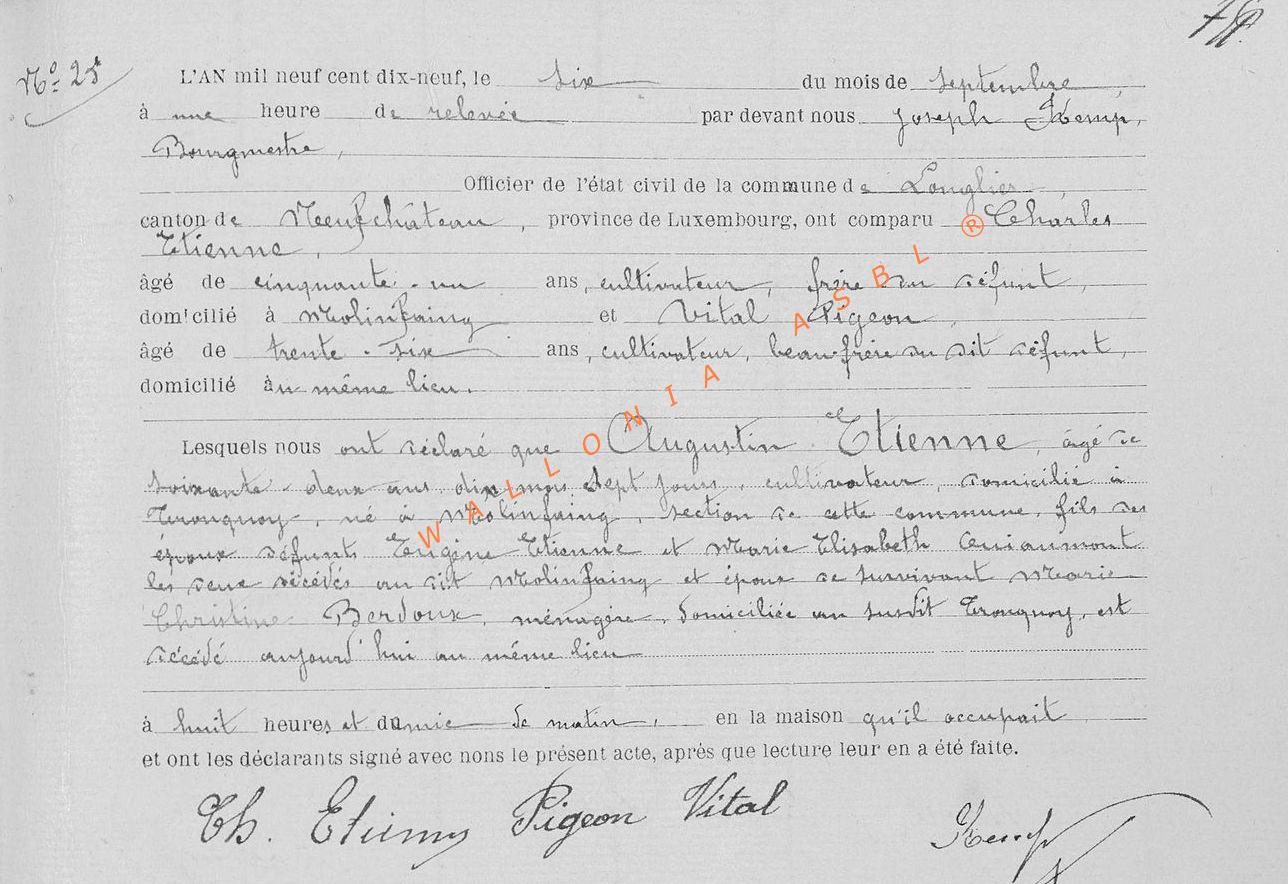 Nº 25
L'AN mil neuf cent dix-neuf, le six du mois de septembre,
à une heure de relevée par devant nous Joseph Kemp,
Bourgmestre,
Officier de l'état civil de la commune de Longlier,
canton de Neufchâteau, province de Luxembourg, ont comparu Charles
Etienne,
âgé de cinquante-un ans, cultivateur, frère du défunt,
domicilié à Molinfaing et Vital Pigeon,
âgé de trente-six ans, cultivateur, beau-frère du dit défunt,
domicilié au même lieu.
Lesquels nous ont déclaré que Augustin Etienne, âgé de
soixante-deux ans, dix mois, sept jours, cultivateur, domicilié à
Tronquoy, né à Molinfaing, section de cette commune, fils des
époux défunts Eugène Etienne et Marie Elisabeth
les deux décédés au dit Molinfaing et époux de survivant Marie
Christine Berdoux, ménagère, domiciliée au susdit Tronquoy, est
décédé aujourd'hui au même lieu
à huit heures et demie de matin, en la maison qu'il occupait
et ont les déclarants signé avec nons le présent acte, après que lecture leur en a été faite.
Ch. Etienne Pigeon Vital
Kemp
WALLONIA ASBL ®